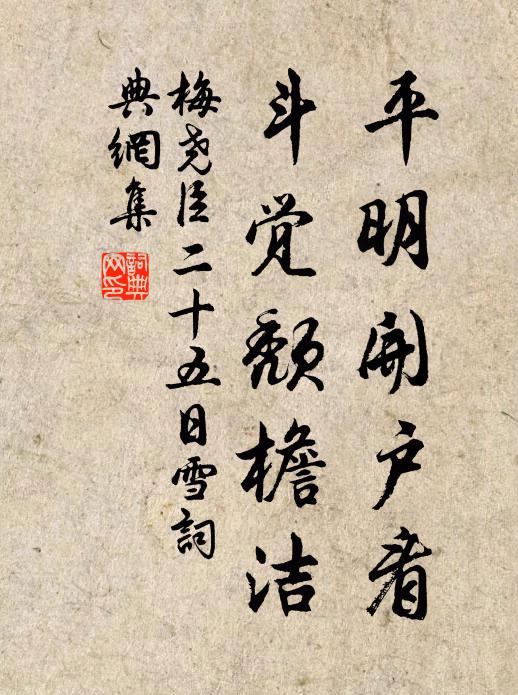 平明開户看
斗觉颓檐洁
梅尧臣二十五日雪詞
典網集
詞典網印